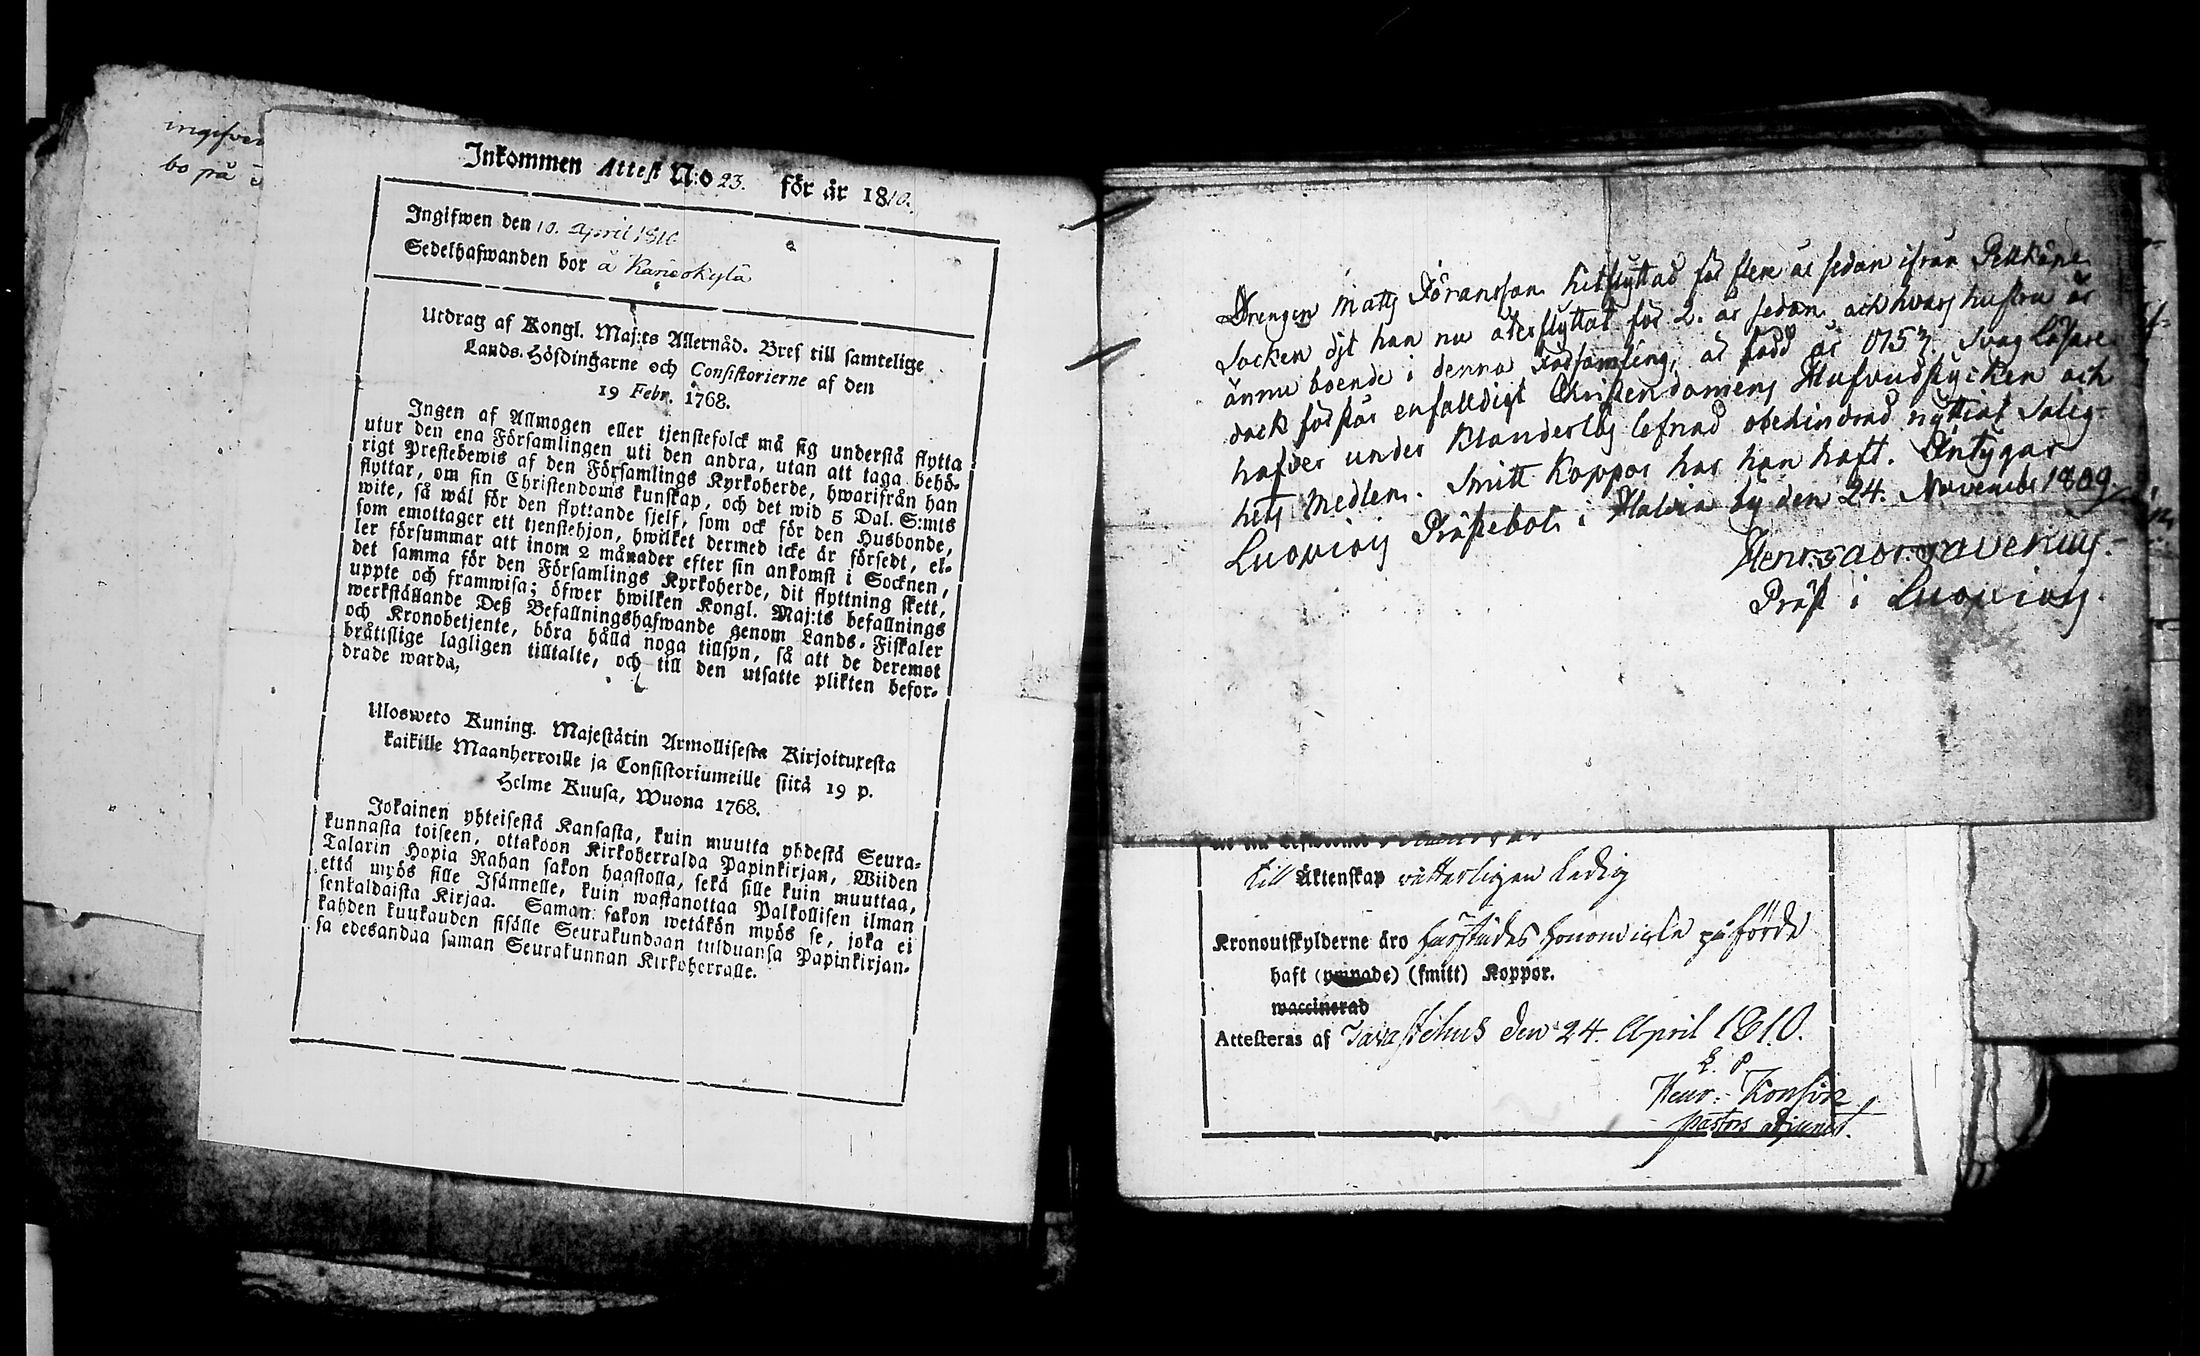 ingifven
bo på
Inkommen Attest N:o 23. för år 1810.
Ingifwen den 10. April 1810
Sedelhafwanden bor å Kansokylä
Utdrag af Kongl. Maj:ts Allernåd. Bref till samtelige
Lands-Höfdingarne och Consistorierne af den
19 Febr. 1768.
Ingen af Allmogen eller tjenstefolck må sig understå flytta
utur den ena Församlingen uti den andra, utan att taga behö-
rigt Prestebewis af den Församlings Kyrkoherde, hwarifrån han
flyttar, om sin Christendoms kunskap, och det wid 5 Dal. S:mts
wite, så wäl för den flyttande sjelf, som ock för den Husbonde,
som emottager ett tjenstehjon, hwilket dermed icke är försedt, el-
ler försummar att inom 2 månader efter sin ankomst i Socknen,
det samma för den Församlings Kyrkoherde, dit flyttning skett,
uppte och framwisa; öfwer hwilken Kongl. Maj:ts befallnings
werkställande Deß Befallningshafwande genom Lands-Fiskaler
och Kronobetjente, böra hålla noga tillsyn, så att de deremot
bråtislige lagligen tilltalte, och till den utsatte plikten befor-
drade warda.
Ulosweto Kuning. Majestätin Armollisesta Kirjoituxesta
kaikille Maanherroille ja Consistoriumeille siitä 19 p.
Helme Kuusa, Wuona 1768.
Jokainen yhteisestä Kansasta, kuin muutta yhdestä Seura-
kunnasta toiseen, ottakoon Kirkoherralda Papinkirjan, Wiiden
Talarin Hopia Rahan sakon haastolla, sekä sille kuin muuttaa,
että myös sille Isännelle, kuin wastanottaa Palkollisen ilman
senkaldaista Kirjaa. Saman sakon wetäkön myös se, joka ei
kahden kuukauden sisälle Seurakundaan tulduansa Papinkirjan-
sa edesandaa saman Seurakunnan Kirkoherralle.
Drengen Matts Göransson hitflyttad för flere år sedan ifrån Pelkäne
Socken dit han nu återflyttat för 2. år sedan och hvars hustru är
ännu boende i denna Församling, är född år 1753 Svag Läsare
dock förstår enfalldigt Christendomens Hufvudstycken och
hafver under klanderlös lefnad obehindrad nyttiat Salig-
hets Medlen. Smitt Koppor har han haft. Intygar
Luopiois Prästebol i Haltia by den 24. November 1809.
Henr. Gabr. Gavenius.
Präst i Luopiois.
till Äktenskap witterligen Ledig
Kronoutskylderne äro påförde
haft (ympade) (smitt) Koppor.
waccinerad
Attesteras af Tavastehus den 24. April 1810.
Henr. Konsin
Pastors adjunct.